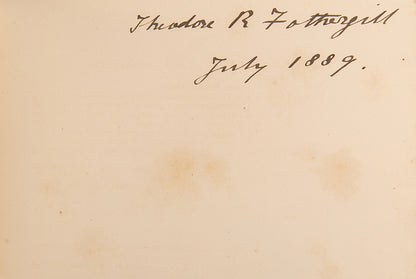 Theodore R Fothergill
July 1889.